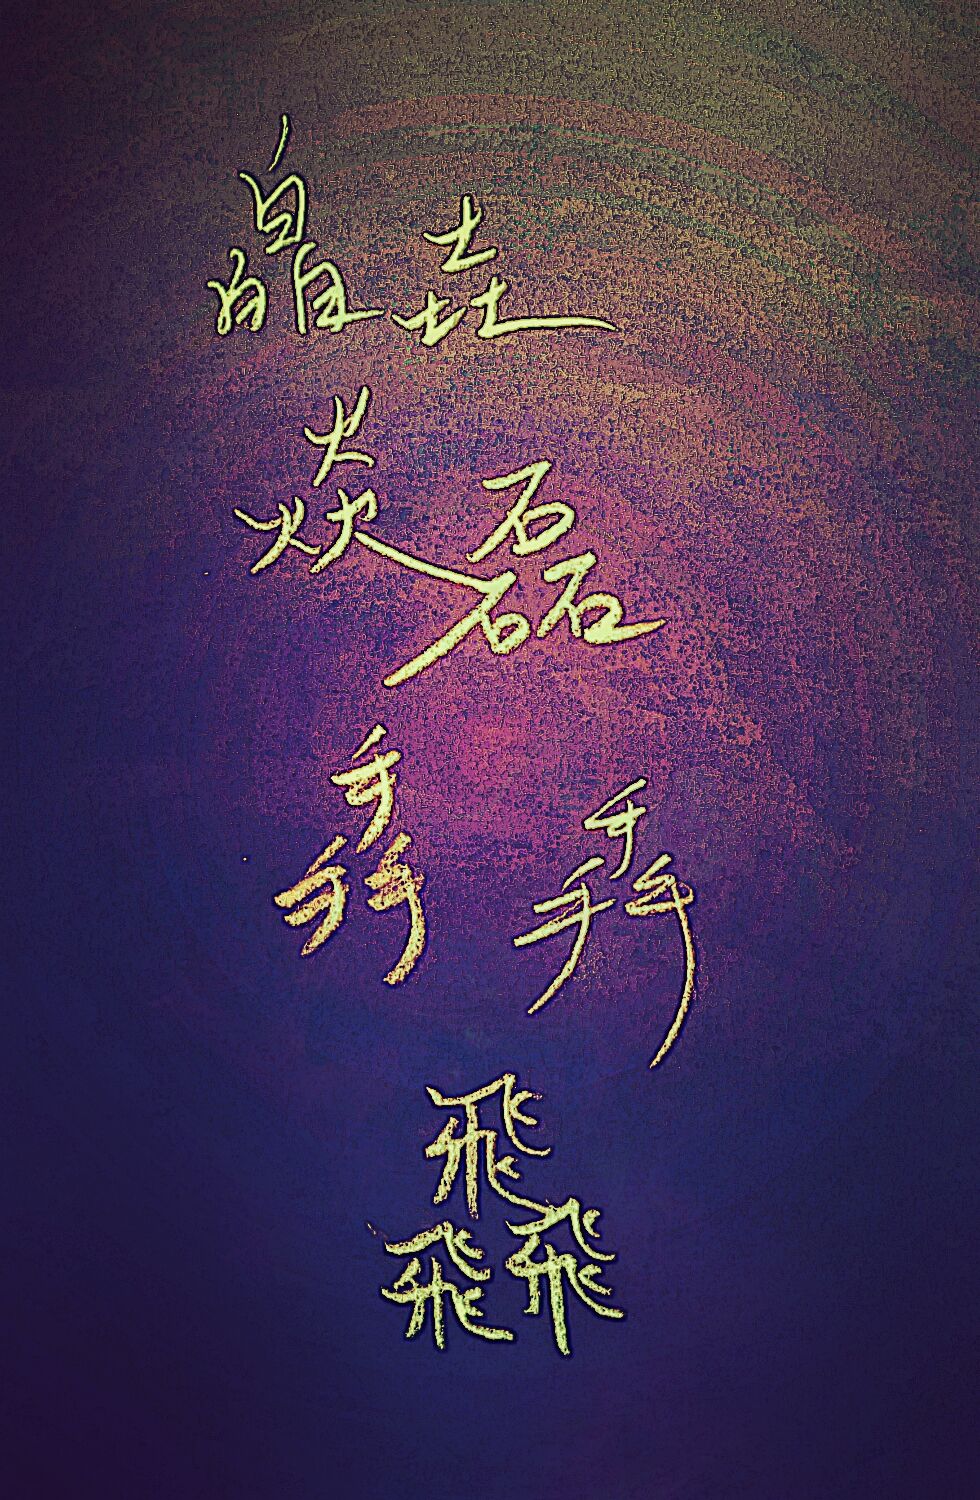 皛垚
焱磊
掱掱
飝